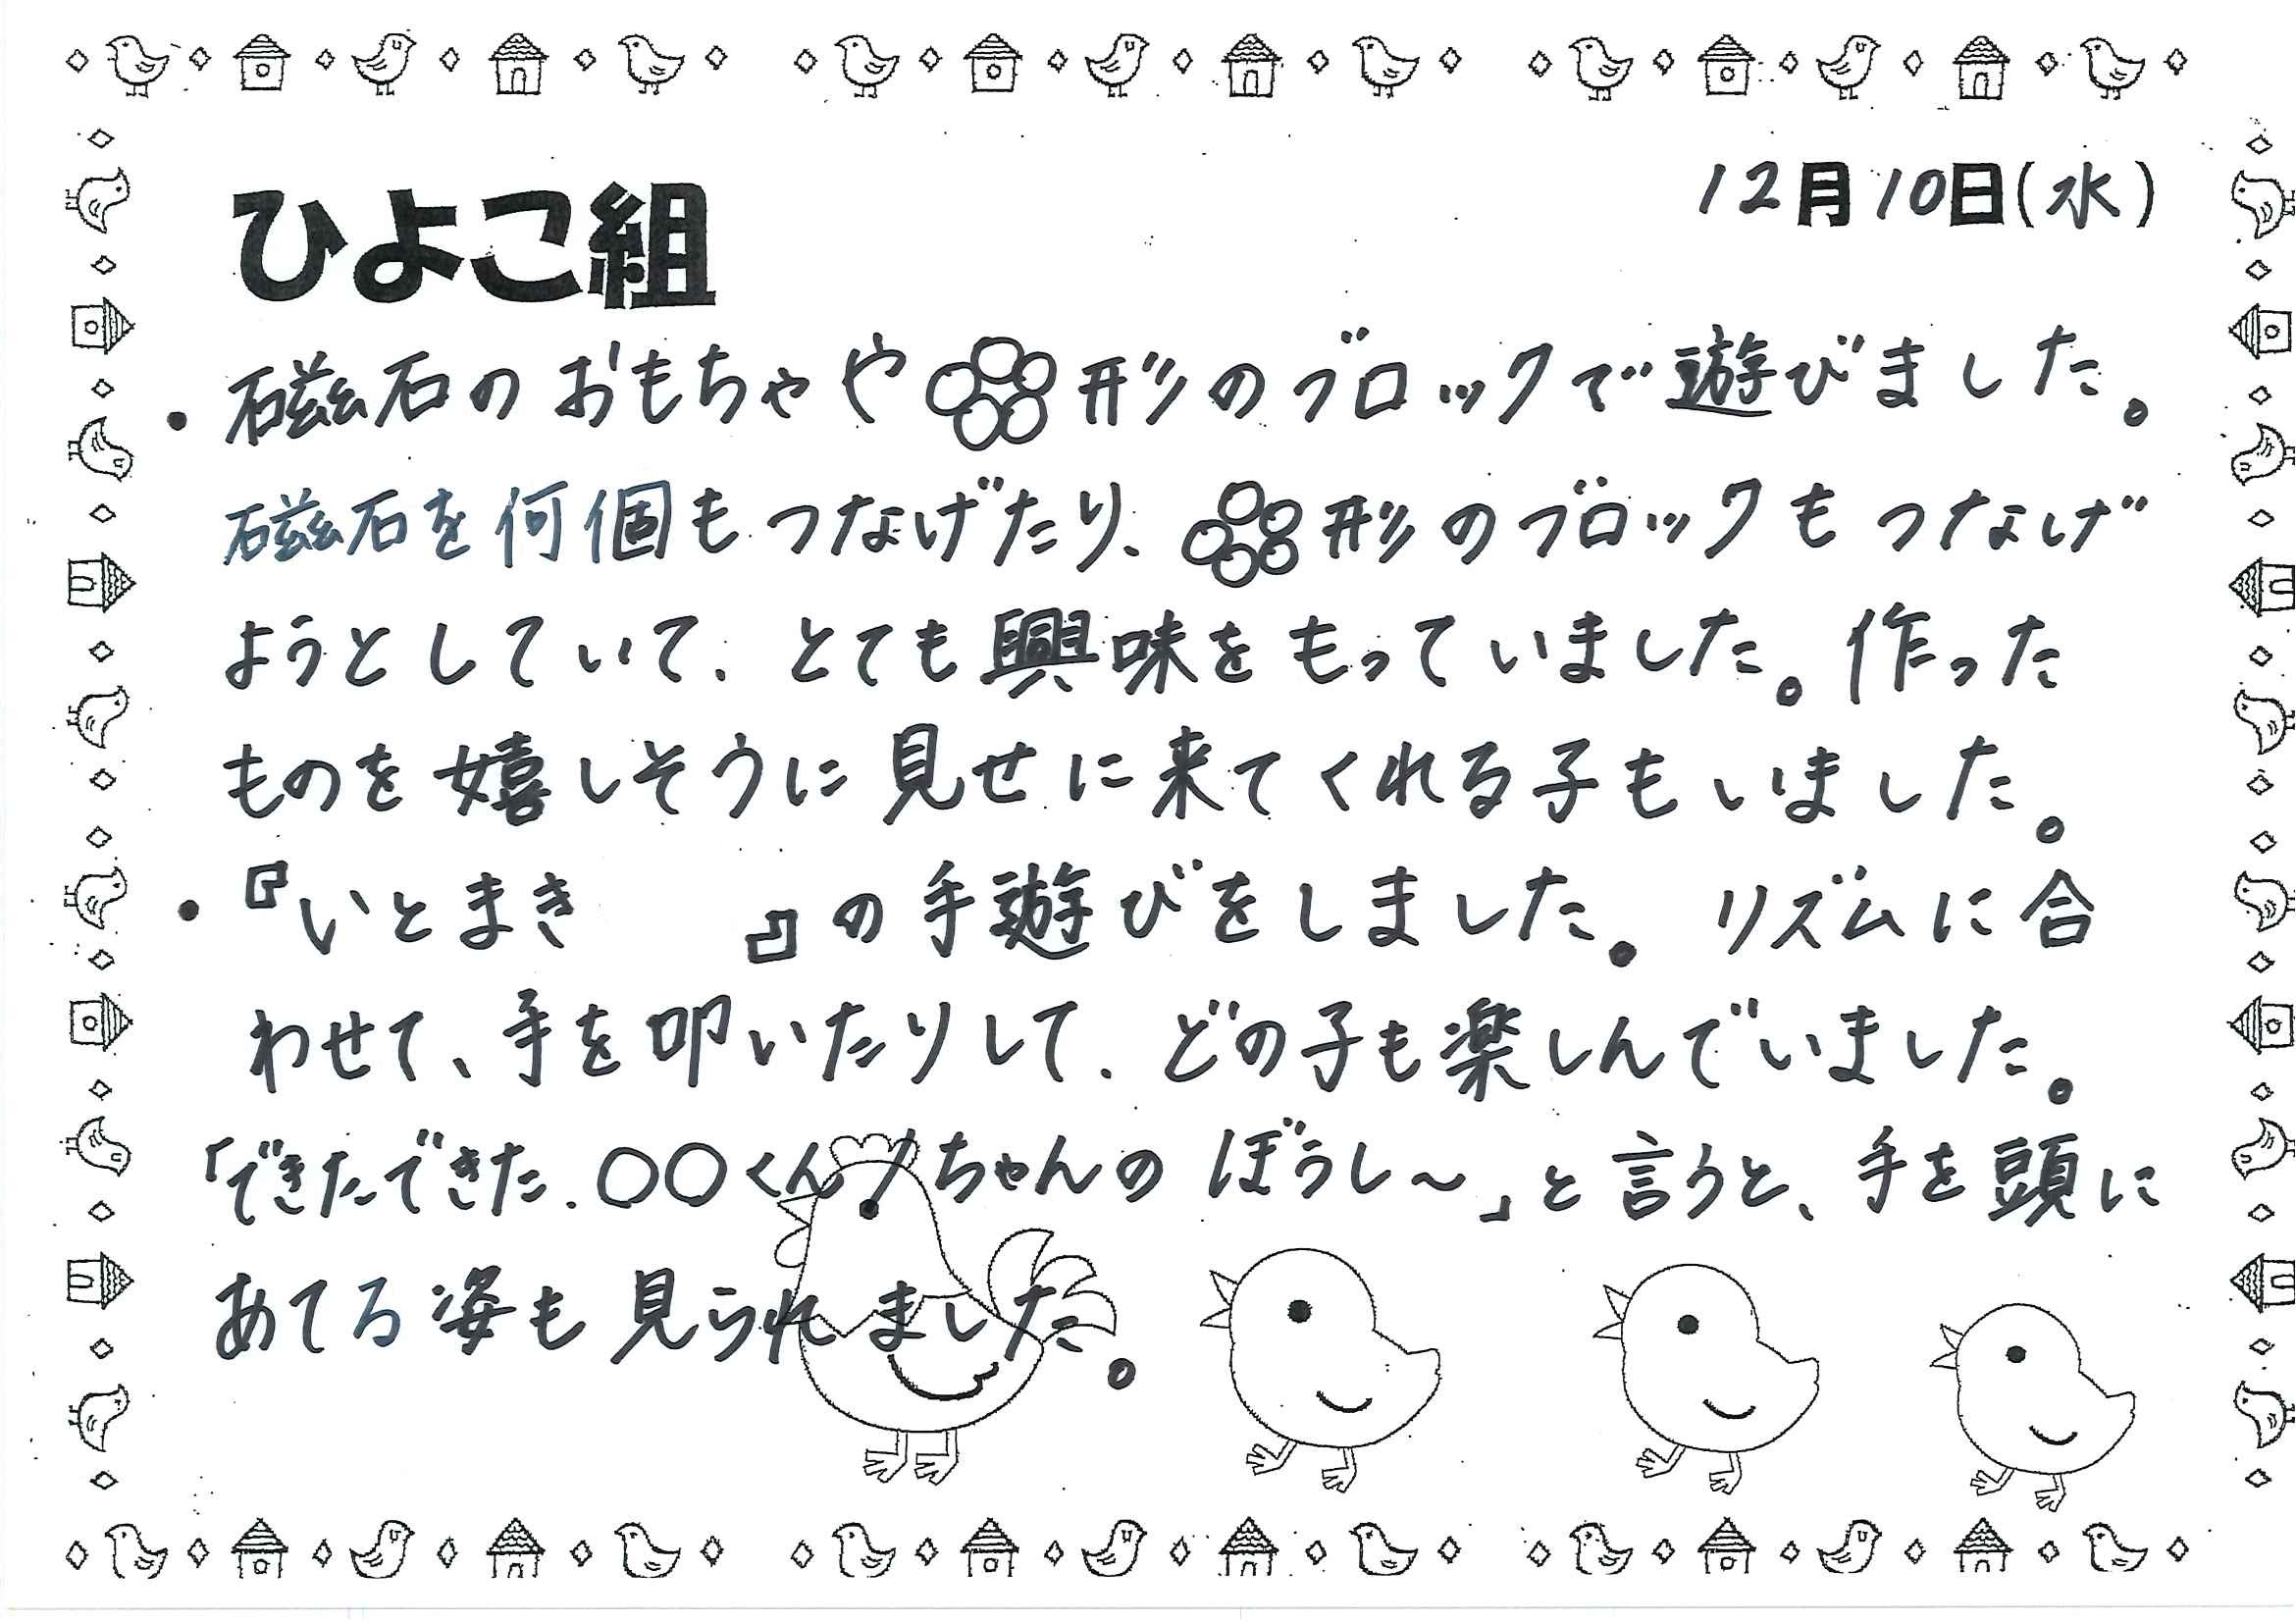 12月10日(水)
ひよこ組
・磁石のおもちゃや形のブロックで遊びました。
磁石を何個もつなげたり、形のブロックもつなげ
ようとしていて、とても興味をもっていました。作った
ものを嬉しそうに見せに来てくれる子もいました。
・『いとまき　　』の手遊びをしました。リズムに合
わせて、手を叩いたりして、どの子も楽しんでいました。
「できたできた、〇〇くん/ちゃんのぼうし〜」と言うと、手を頭に
あてる姿も見られました。